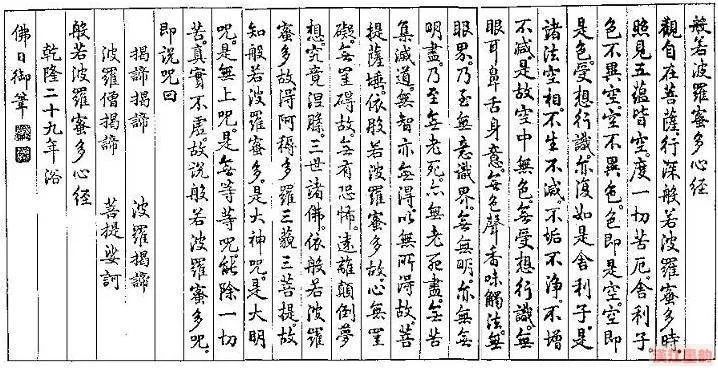 般若波羅蜜多心经
觀自在菩薩。行深般若波羅蜜多時
照見五蘊皆空。度一切苦厄。舍利子
色不異空。空不異色。色即是空。空即
是色。受想行識。亦復如是。舍利子。是
諸法空相。不生不滅。不垢不淨。不增
不減。是故空中無色。無受想行識。無
眼耳鼻舌身意。無色聲香味觸法。無
眼界。乃至無意識界。無無明。亦無無
明盡。乃至無老死。亦無老死盡。無苦
集滅道。無智亦無得。以無所得故。菩
提薩埵。依般若波羅蜜多故。心無罣
礙。無罣碍故。無有恐怖。遠離顛倒夢
想。究竟涅槃。三世諸佛。依般若波羅
蜜多故。得阿耨多羅三藐三菩提。故
知般若波羅蜜多。是大神咒。是大明
咒。是無上咒。是無等等咒。能除一切
苦。真實不虛。故說般若波羅蜜多咒。
即說咒曰
揭諦揭諦 波羅揭諦
波羅僧揭諦 菩提娑訶
般若波羅蜜多心经
乾隆二十九年浴
佛日御筆